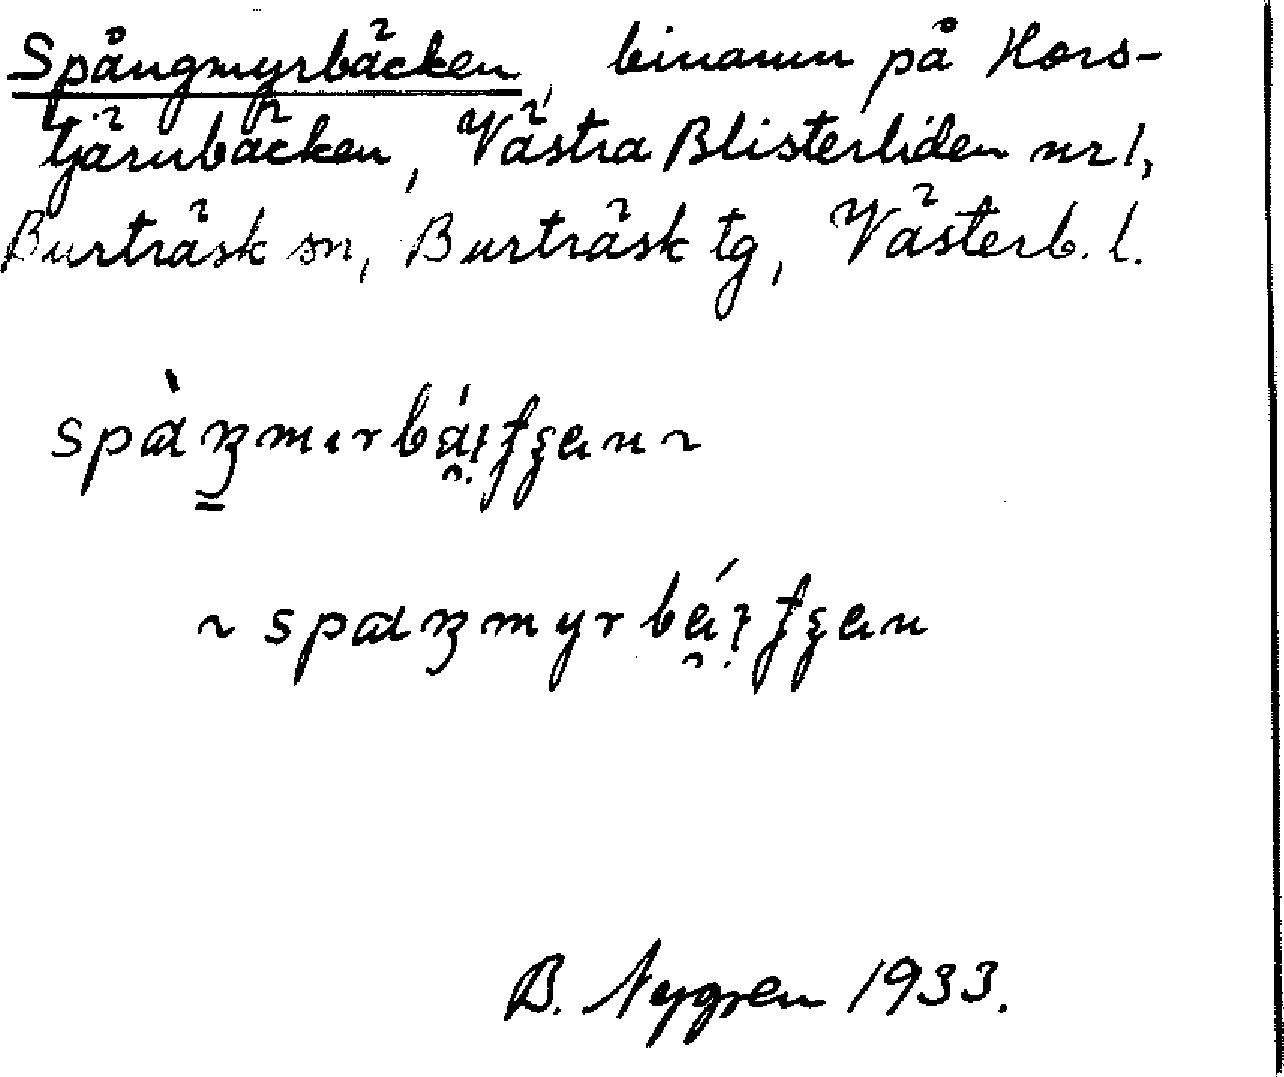 Spångmyrbäcken, binamn på Hors-
tjärnbäcken, Västra Blisterliden nr 1,
Burträsk sn, Burträsk tg, Västerb. l.
B. Nygren 1933.